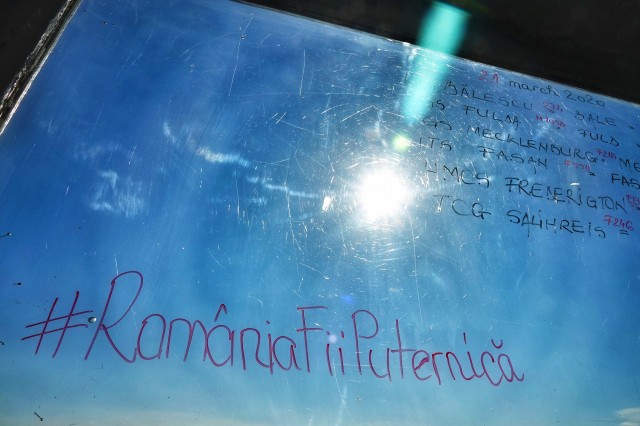 21 march 2020
BĂLESCU BALE
FULDA FULD
MECKLENBURG ME
ITS FASAN FAS
HMCS FREDERIGTON
TCG SALIHREIS 7246
#RomâniaFiiPuternică